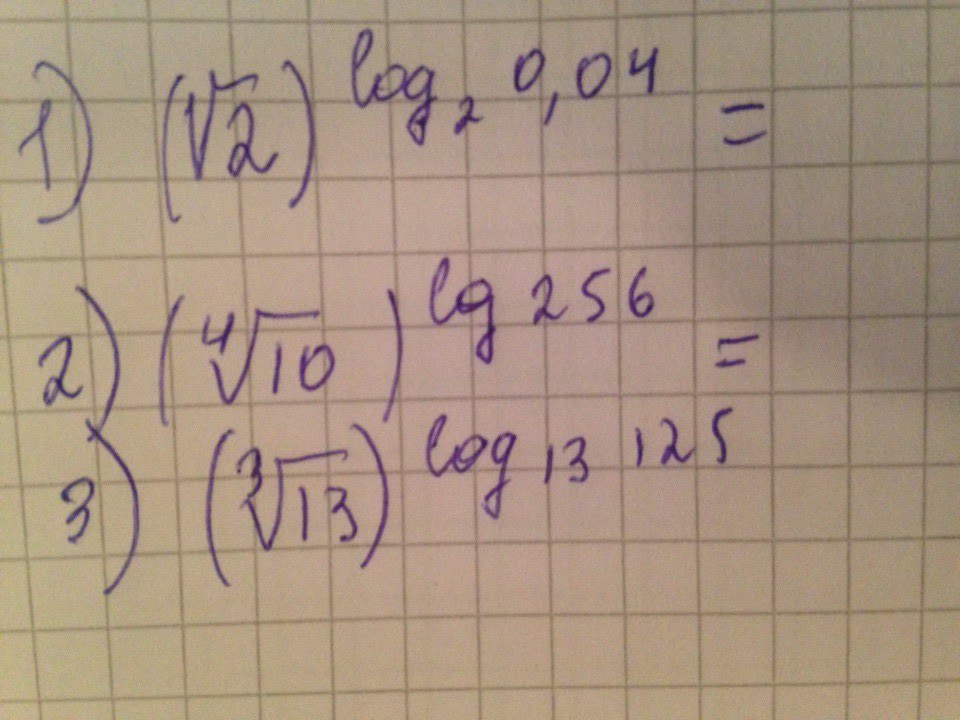 1) (√2)^log₂ 0,04 =
2) (⁴√10)^lg 256 =
3) (³√13)^log₁₃ 125